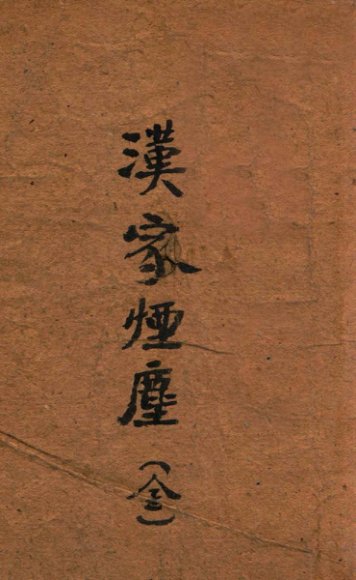 漢家煙塵（全）